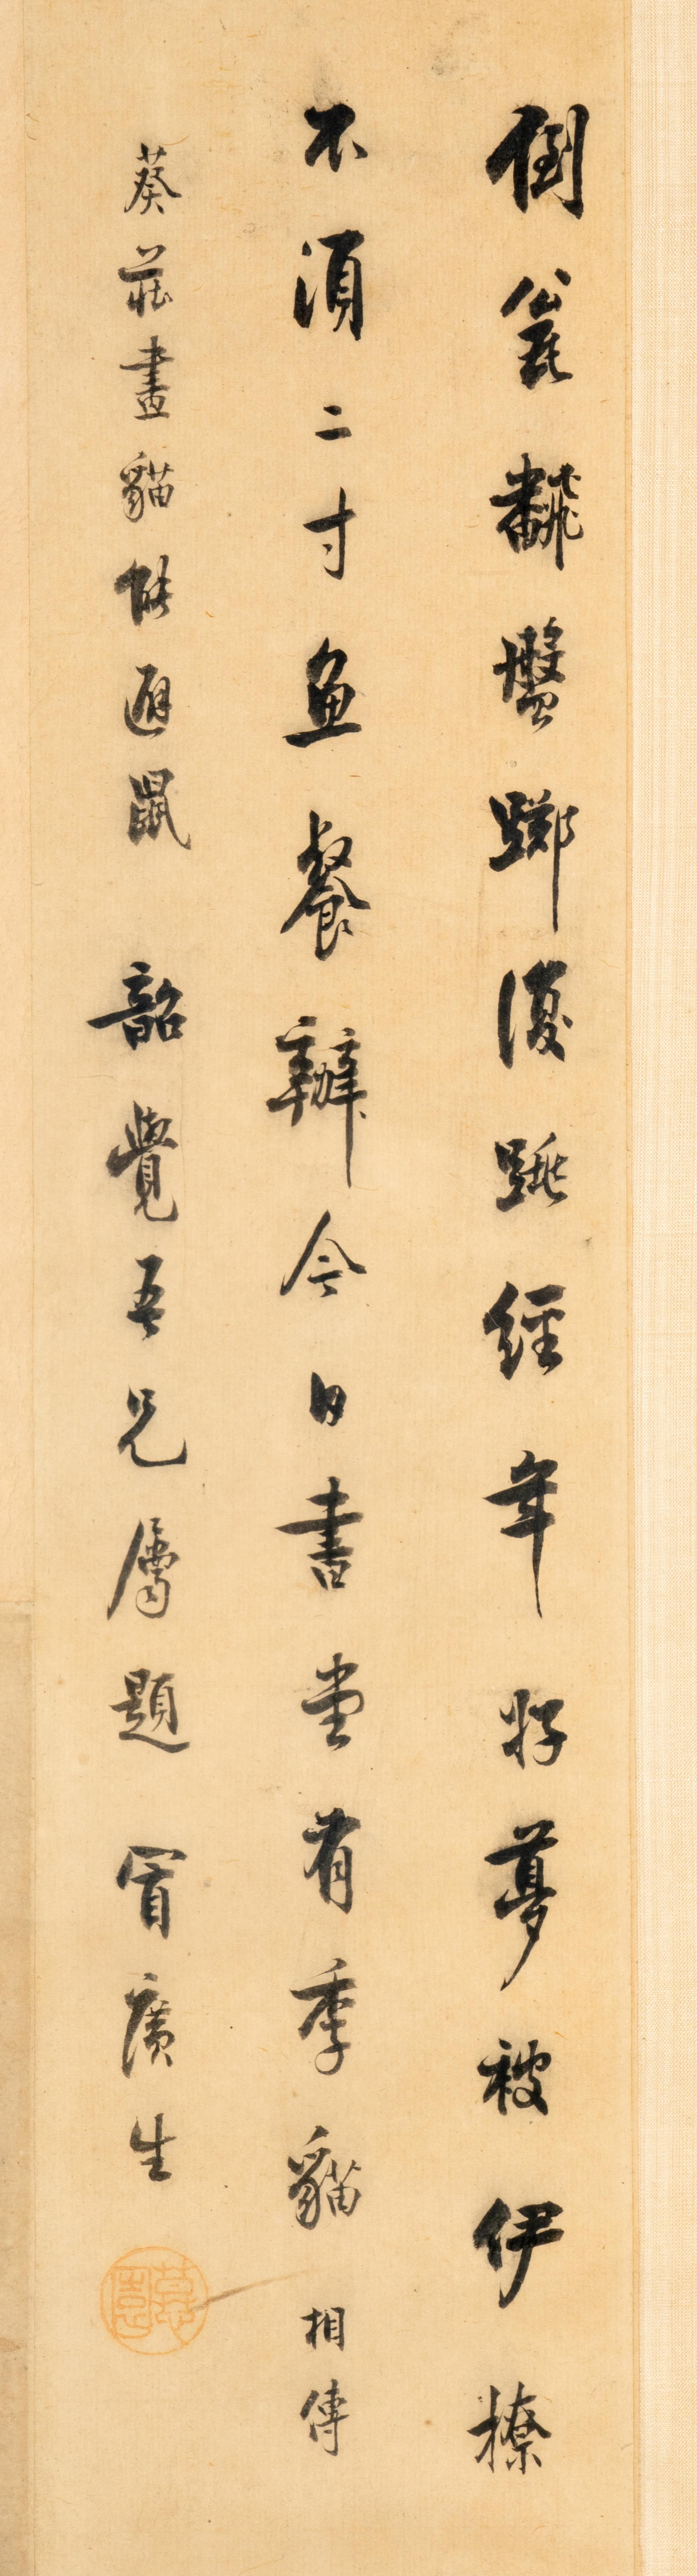 倒瓮飜盤躑復跳經年好夢被伊撩
不須二寸魚餐辦今日書堂有季貓 相傳
葵莊畫貓能避鼠 韶覺吾兄屬題 冒廣生